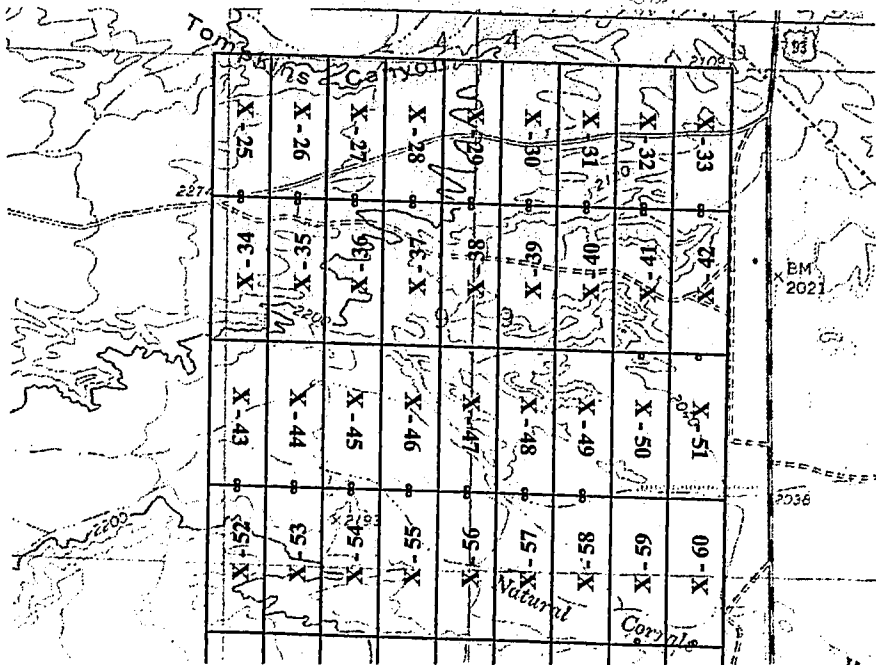 Tompkins Canyon
4 4
93
2109
X-25 X-26 X-27 X-28 X-29 X-30 X-31 X-32 X-33
2274
X-34 X-35 X-36 X-37 X-38 X-39 X-40 X-41 X-42
BM
2021
2200
9 9
X-43 X-44 X-45 X-46 X-47 X-48 X-49 X-50 X-51
2038
2200
×2193
X-52 X-53 X-54 X-55 X-56 X-57 X-58 X-59 X-60
Natural Corrals